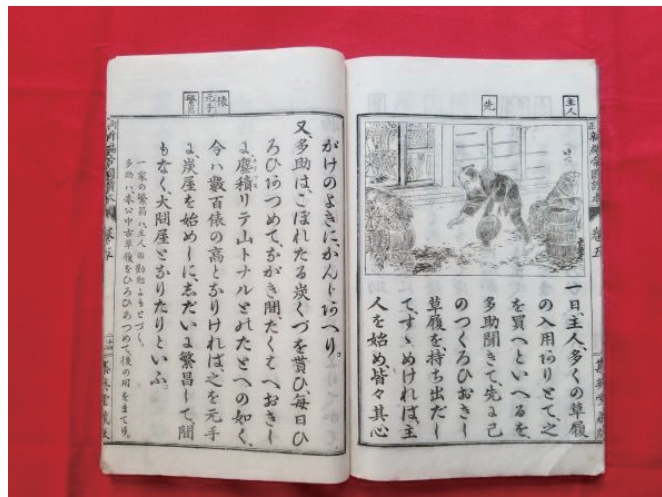 主人
先
一日、主人、多くの草履
の入用ありとて、之
を買へといへるを、
多助聞きて、先に己
のつくろひおきし
草履を持ち出だし
て、すゝめければ、主
人を始め皆々其心
巻五
俵
元手
繁昌
がけのよきに、かんじあへり。
又、多助は、こぼれたる炭くづを貰ひ、毎日ひ
ろひあつめて、ながき間、たくはへおきし
に、塵積リテ山トナルとたとへの如く、
今ハ數百俵の高となりければ、之を元手
に、炭屋を始めしに、しだいに繁昌して、間
もなく、大問屋となりたりといふ。
一家の繁昌ハ、主人の勤勉にもとづく。
多助ハ、奉公中古草履をひろひあつめて、後の用をまてり。